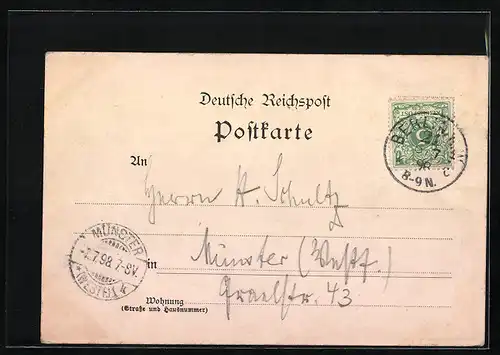 Deutsche Reichspost
Postkarte
An
Herrn A. Schultz
in
Münster (Westf.)
Graelstr. 43
Wohnung
(Straße und Hausnummer)
MÜNSTER
7.98. 7-8V.
(WESTF.)
BERLIN
8-9N.